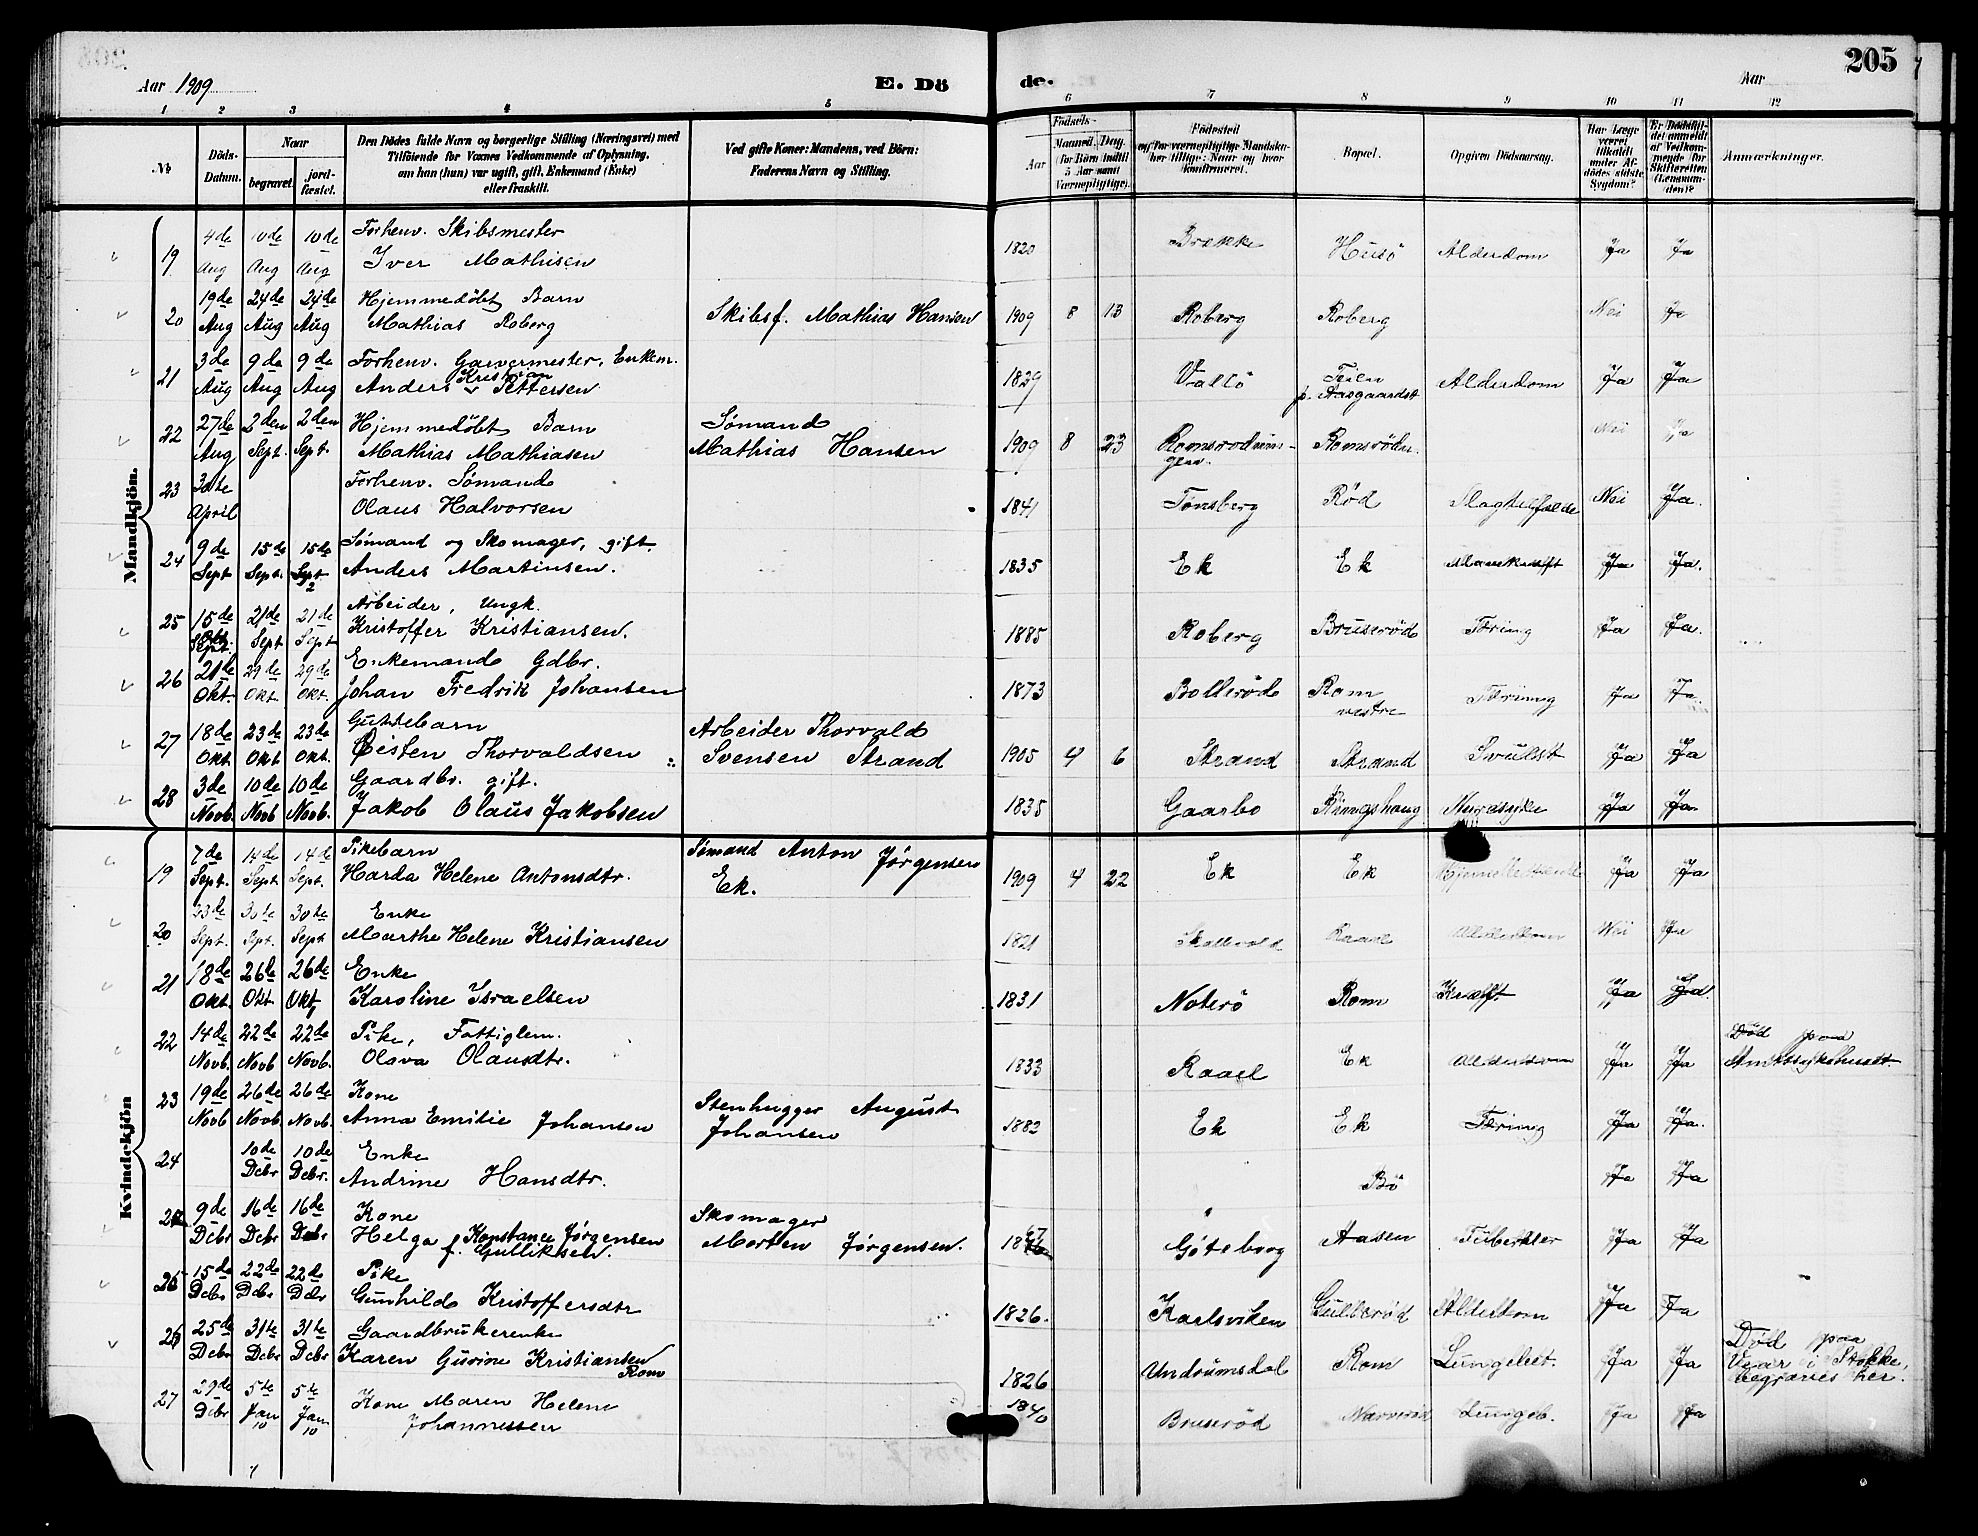 Aar 1909
E. Dö
de.
Aar
205
1 2 3 4 5 6 7 8 9 10 11 12
№
Döds-
Datum.
Naar
begravet.
jord-
fæstet.
Den Dödes fulde Navn og borgerlige Stilling (Næringsvei) med
Tilföiende for Voxnes Vedkommende af Oplysning,
om han (hun) var ugift, gift, Enkemand (Enke)
eller fraskilt.
Ved gifte Koner: Mandens, ved Börn:
Faderens Navn og Stilling.
Födsels-
Aar
Maaned. Dag
(for Börn indtil
5 Aar samt
Værnepligtige).
Födested
og for værnepligtige Mandska-
ber tillige: Naar og hvor
konfirmeret.
Bopæl.
Opgiven Dödsaarsag.
Har Læge
været
tilkaldt
under Af-
dödes sidste
Sygdom?
Er Dödsfal-
det anmeldt
af Vedkom-
mende for
Skifteretten
(Lensman-
den)?
Anmærkninger.
Mandkjön.
4de 10de 10de Forhenv. Skibsmester
19 Aug Aug Aug Iver Mathisen 1820 Brække Husö Alderdom Ja Ja
19de 24de 24de Hjemmedöbt Barn
20 Aug Aug Aug Mathias Roberg Skibsf. Mathias Hansen 1909 8 13 Roberg Roberg Nei Ja
3de 9de 9de Forhenv. Garvermester, Enkem.
Kristian
21 Aug Aug Aug Anders Pettersen 1829 Vallö p. Aasgaardst Alderdom Ja Ja
27de 2den 2den Hjemmedöbt Barn Sømand
22 Aug Sept. Sept. Mathias Mathiasen Mathias Hansen 1909 8 23 Romsrödnin-
gen. Romsröden. Nei Ja
23 30te Forhenv. Sømand
April Olaus Halvorsen 1841 Tønsberg Rød Slagtilfælde Nei Ja.
9de 15de 15de Sømand og Skomager, gift.
24 Sept Sept. Sept Anders Martinsen. 1835 Ek Ek Ja Ja.
2
15de 21de 21de Arbeider, Ungk.
25 Sept. Sept Sept Kristoffer Kristiansen. 1885 Roberg Bruserød Tæring Ja Ja.
21de 29de 29de Enkemand Gdbr.
26 Okt. Okt. Okt. Johan Fredrik Johansen 1873 Bollerød Rom
vestre Tæring Ja Ja
18de 23de 23de Guttebarn Arbeider Thorvald
27 Okt. Okt Okt. Eisten Thorvaldsen Svensen Strand 1905 4 6 Strand Strand Svulst Ja Ja
3de 10de 10de Gaardbr. gift.
28 Novb. Novb Novb. Jakob Olaus Jakobsen 1835 Gaarbo Ringshaug Nyresyke Ja Ja
Kvindekjön
7de 14de 14de Pikebarn Sømand Anton Jørgensen
19 Sept. Sept. Sept. Harda Helene Antonsdtr. Ek. 1909 4 22 Ek Ek Ja Ja
23de 30te 30te Enke
20 Sept. Sept. Sept Marthe Helene Kristiansen 1821 Skallevold Raael Alderdom Nei Ja
18de 26de 26de Enke
21 Okt. Okt. Okt Karoline Israelsen 1831 Noterö Rom Kræft Ja Ja.
14de 22de 22de Pike, Fattiglem. Død paa
22 Novb. Novb Novb. Olava Olausdtr. 1833 Raael Ek Alderdom Ja Ja Amtssykehuset.
19de 26de 26de Kone Stenhugger August
23 Novb Novb. Novb. Anna Emilie Johanson Johansen 1882 Ek Ek Tæring Ja Ja.
10de 10de Enke
24 Debr Debr. Andrine Hansdtr. Bö Ja Ja
9de 16de 16de Kone Skomager
Debr Debr Debr Helga Konstance Jørgensen Morten Jørgensen. 1867 Göteborg Aasen Tuberkler Ja Ja
f. Gulliksen.
15de 22de 22de Pike
25 Debr Debr Debr Gunhild Kristoffersdtr 1826. Karlsviken Gullerød Alderdom Ja Ja
25de 31te 31te Gaardbrukerenke Død paa
26 Debr Debr Debr Karen Gurine Kristiansen 1826 Undrumsdal Rom Lungebet. Ja Ja i Stokke,
Rom begraves her.
29de 5te 5te Kone Maren Helene
27 Debr Jan Jan Johannessen 1840 Bruserød Narverød Lungeb. Ja Ja
10 10